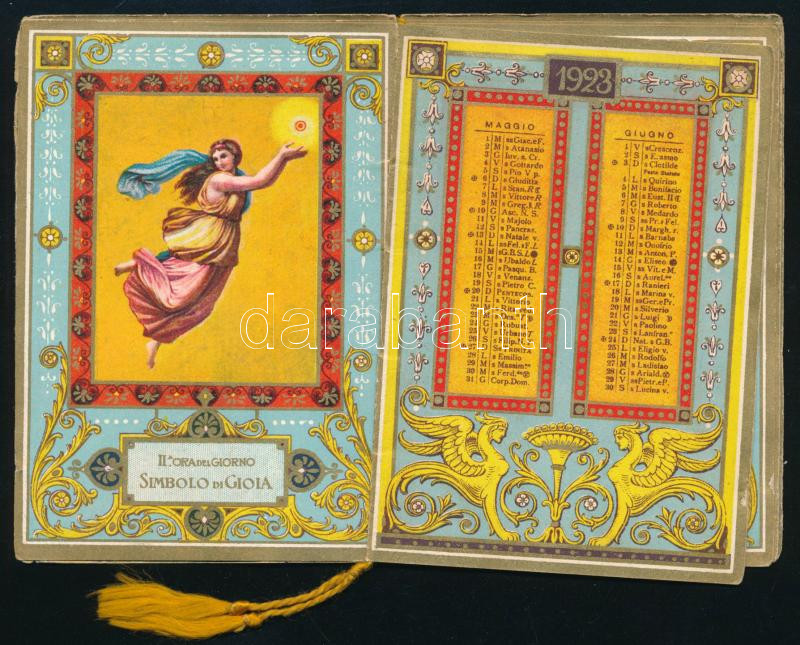 IIª ORA DEL GIORNO
SIMBOLO DI GIOIA
1923
MAGGIO
1 M ss Giac. e F.
2 M s Atanasio
3 G Inv. s. Cr.
4 V s Gottardo
5 S s Pio V p.
6 D s Giuditta
7 L s Stan. R
8 M s Vittore R
9 M s Greg. R
10 G Asc. N. S.
11 V s Majolo
12 S s Pancras.
13 D s Natale v.
14 L ss Fel. s F. L
15 M s G.B.S. L
16 M s Ubaldo L
17 G s Pasqu. B.
18 V s Venanz.
19 S s Pietro C.
20 D PENTECO
21 L s Vittorio
22 M s Rita
23 M s
24 G s Robust.
25 V s Urbano T
26 S s Filip. N.
27 D s
28 L s Emilio
29 M s Massim.
30 M s Ferd.
31 G Corp. Dom.
GIUGNO
1 V s Crescenz.
2 S s Erasmo
3 D s Clotilde
Festa Statuto
4 L s Quirino
5 M s Bonifacio
6 M s Eust. II
7 G s Roberto
8 V s Medardo
9 S ss Pr. s Fel.
10 D s Margh. r.
11 L s Barnaba
12 M s Onofrio
13 M s Anton. P.
14 G s Eliseo
15 V ss Vit. e M.
16 S s Aurel.
17 D s Ranieri
18 L s Marina v.
19 M ss Ger. e Pr.
20 M s Silverio
21 G s Luigi
22 V s Paolino
23 S s Lanfran.
24 D Nat. s G.B.
25 L s Eligio v.
26 M s Rodolfo
27 M s Ladislao
28 G s Ariald.
29 V ss Pietr. e P.
30 S s Lucina v.
darabanth